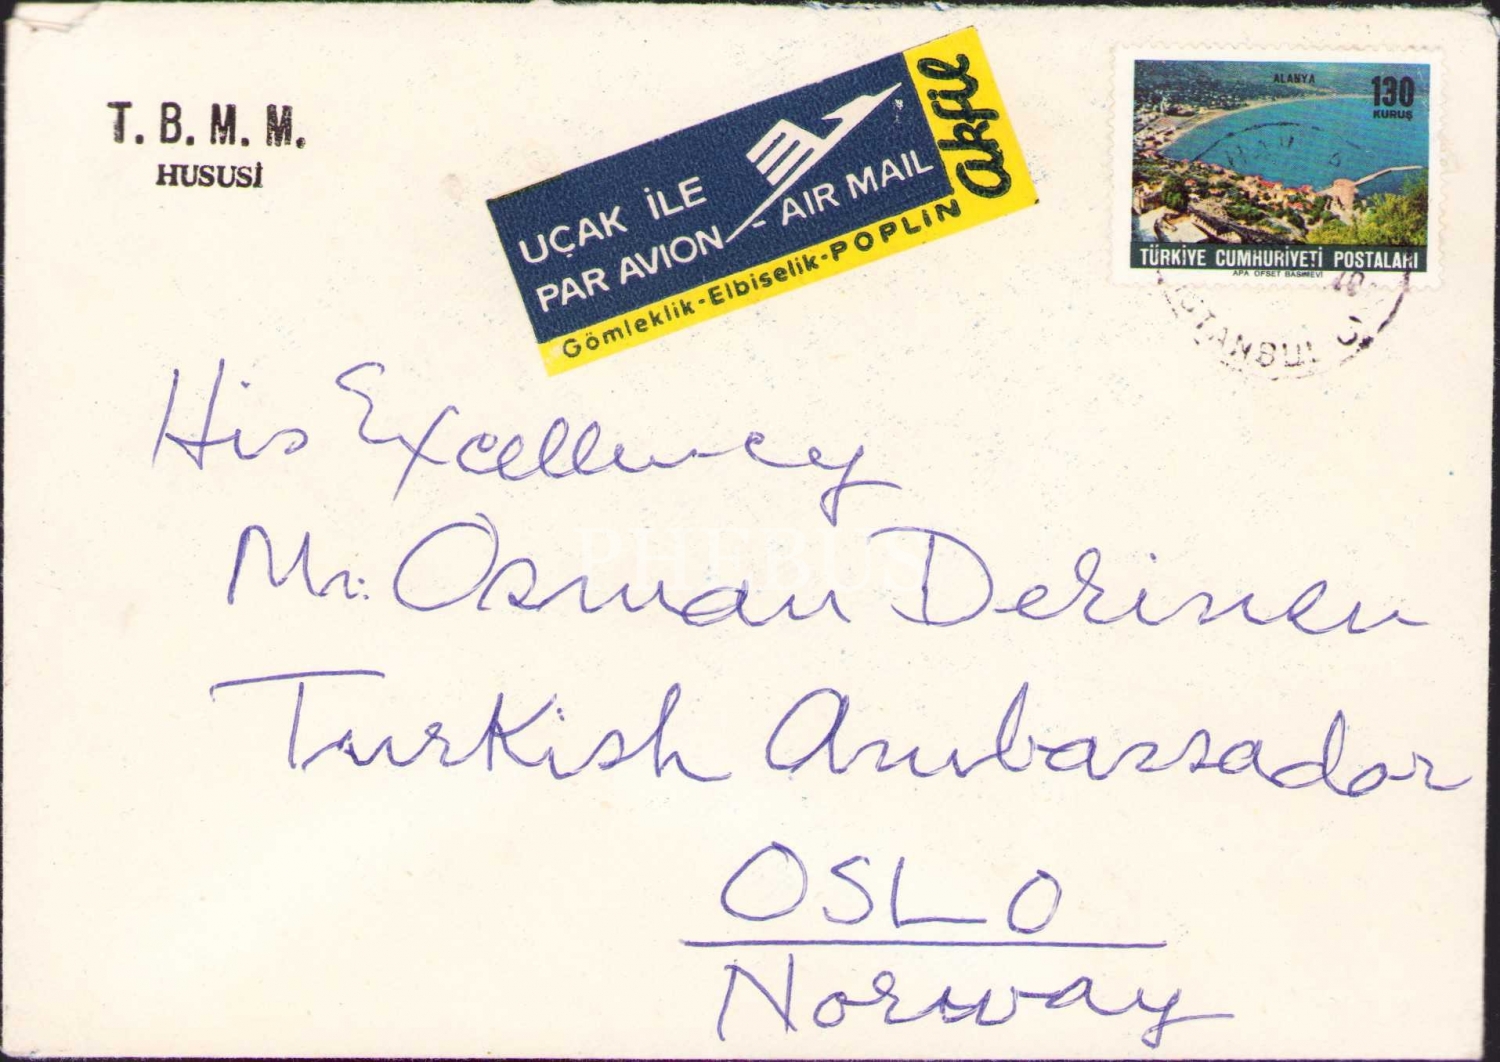 T. B. M. M.
HUSUSİ
UÇAK İLE
PAR AVION - AIR MAIL
Gömleklik-Elbiselik-POPLIN
akfil
ALANYA
130
KURUŞ
TÜRKİYE CUMHURİYETİ POSTALARI
APA OFSET BASIMEVİ
ISTANBUL
His Excellency
Mr. Osman Derinsu
Turkish Ambassador
OSLO
Norway
PHEBUS